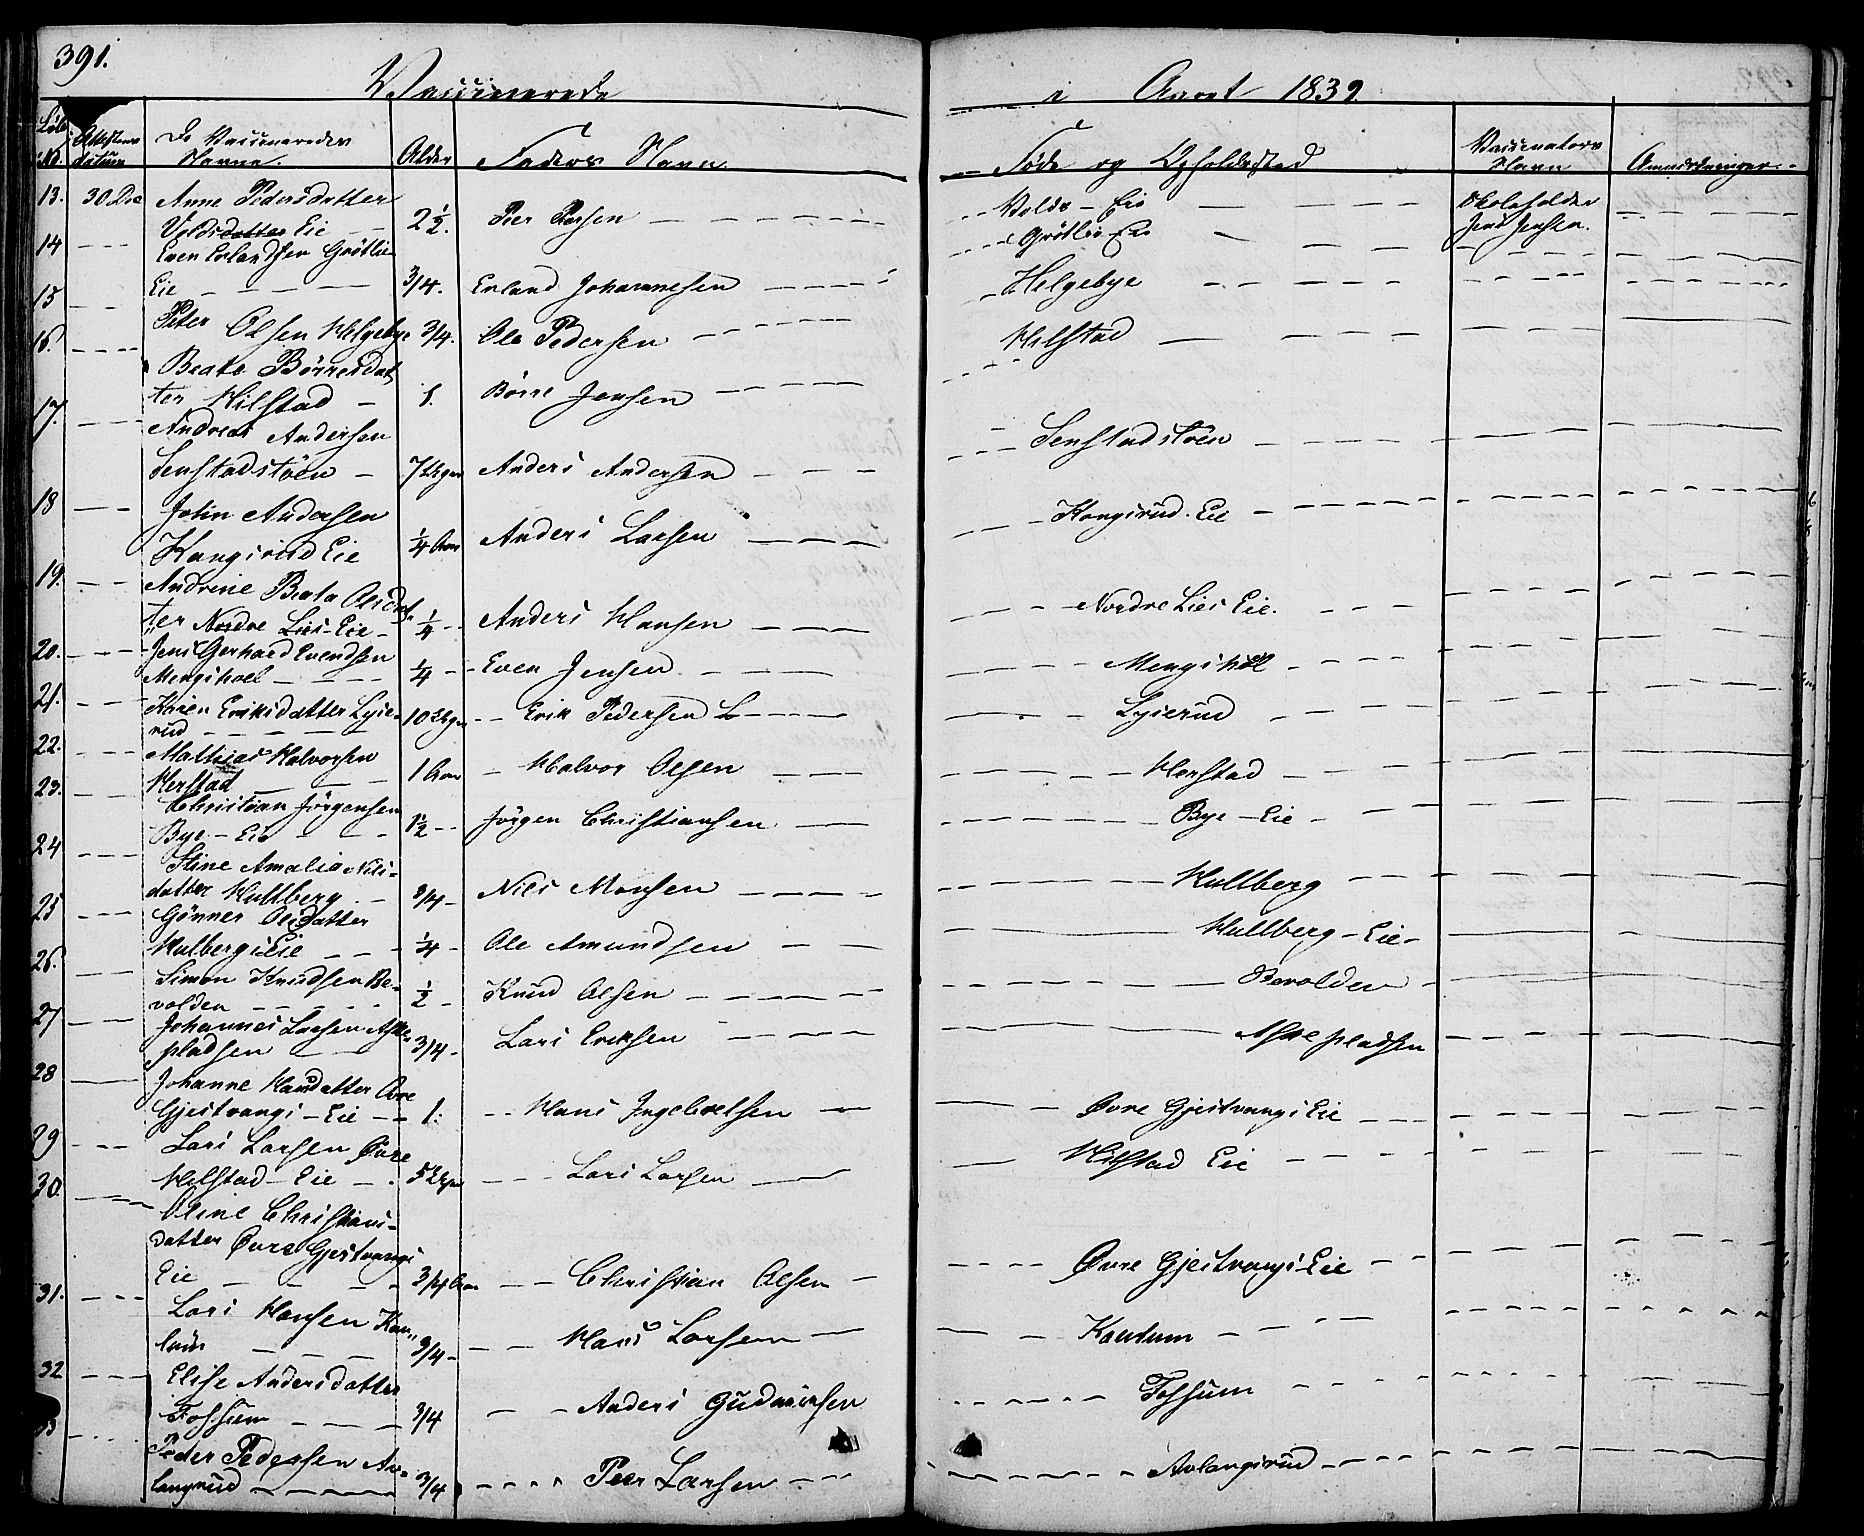 391.
Vaccinerede i Aaret 1839
Løbe No. Attestens datum De Vaccineredes Navne. Alder Faders Navn Føde og Opholdssted Vaccinators Navn Anmærkninger
13. 30 Dec Anne Pedersdatter
Volds datter Eie 2½. Peer Persen Volds - Eie Skoleholder
Jens Jensen.
14 Even Erlandsen Grötlie
Eie ¾. Erland Johannesen Grötlie Eie
15 Peter Olsen Helgebye ¾. Ole Pedersen Helgebye
16. Beate Börresdat
ter Hilstad 1. Börre Jensen Hilstad
17. Andreas Andersen
Senstadstöen 7 Anders Andersen Senstadstöen
18 John Andersen
Kongsrud Eie ¼ Anders Larsen Kongsrud. Eie
19. Andrine Beata Olsdat
ter Nordre Lies-Eie ¼ Anders Hansen Nordre Lies Eie.
20. Jens Gerhard Evendsen
Mengshoel ¼ Even Jensen Mengshoel
21. Karen Eriksdatter Lysie-
rud 10 Erik Pedersen L Lysierud
22. Mathias Halvorsen
Herstad 1 Halvor Olsen Herstad
23. Christian Jörgensen
Bye - Eie 1½ Jörgen Christiansen Bye - Eie
24 Stine Amalia Nils-
datter Hullberg ¾ Nils Monsen Hullberg
25 Gönner Olsdatter
Hulbergs Eie ¼ Ole Amundsen Hullberg - Eie
26. Simon Knudsen Be-
volden ½ Knud Olsen Bevolden
27 Johannes Larsen Aske-
pladsen ¾ Lars Eriksen Askepladsen
28 Johanne Hansdatter Øvre
Gjestvangs - Eie 1. Hans Ingebretsen Øvre Gjestvangs Eie
29 Lars Larsen Øvre
Hilstad - Eie 5 Lars Larsen Hilstad Eie
30. Oline Christians-
datter Øvre Gjestvangs
Eie ¾ Christian Olsen Øvre Gjestvangs-Eie
31. Lars Hansen Kau-
¾ Hans Larsen Kautum
32 Elise Andersdatter
Fossum ¾ Anders Gudmunsen Fossum
Peder Pedersen Av-
langsrud ¾ Peer Larsen Avlangsrud